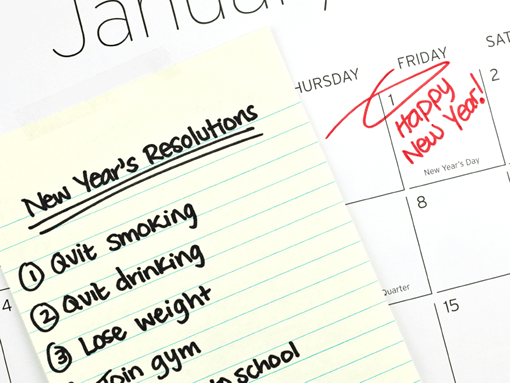 January
THURSDAY
FRIDAY
1
2
Happy
New Year!
New Year's Day
8
Quarter
15
4
New Year's Resolutions
1 Quit smoking
2 Quit drinking
3 Lose weight
Join gym
in school